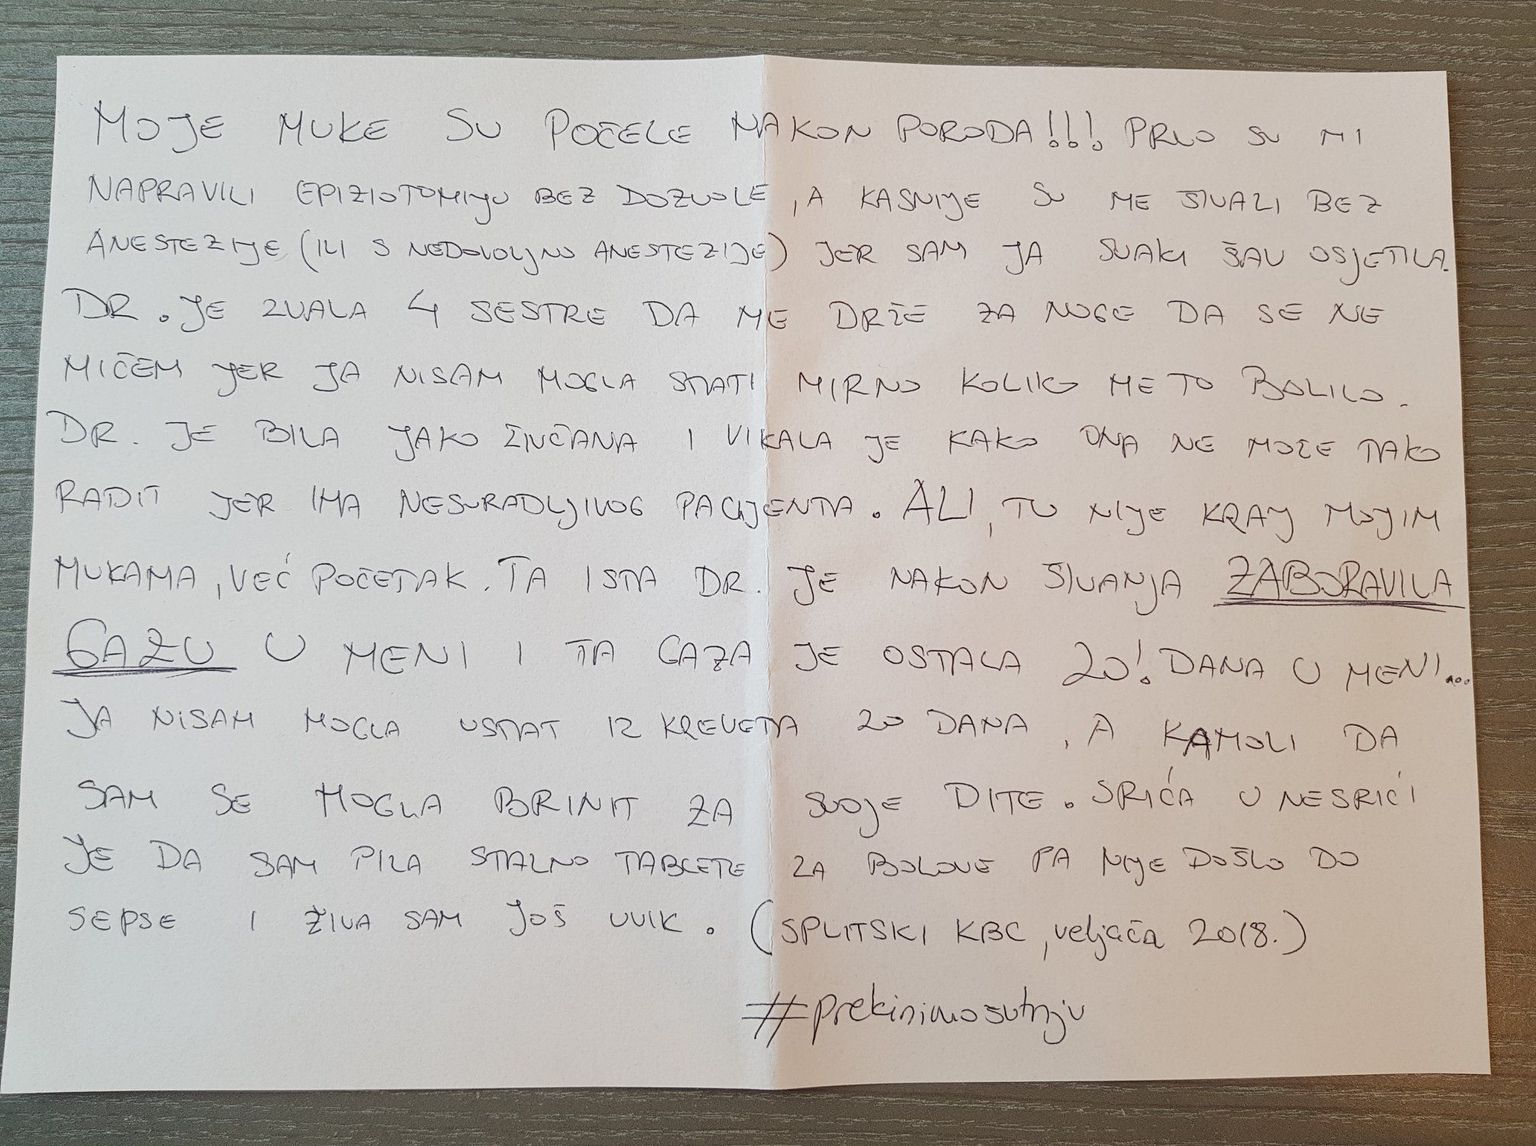 MOJE MUKE SU POČELE NAKON PORODA!!! PRVO SU MI
NAPRAVILI EPIZIOTOMIJU BEZ DOZVOLE, A KASNIJE SU ME ŠIVALI BEZ
ANESTEZIJE (ILI S NEDOVOLJNO ANESTEZIJE) JER SAM JA SVAKI ŠAV OSJETILA.
DR. JE ZVALA 4 SESTRE DA ME DRŽE ZA NOGE DA SE NE
MIČEM JER JA NISAM MOGLA STATI MIRNO KOLIKO ME TO BOLILO.
DR. JE BILA JAKO ŽIVČANA I VIKALA JE KAKO ONA NE MOŽE TAKO
RADIT JER IMA NESURADLJIVOG PACIJENTA. ALI, TU NIJE KRAJ MOJIM
MUKAMA, VEĆ POČETAK. TA ISTA DR. JE NAKON ŠIVANJA ZABORAVILA
GAZU U MENI I TA GAZA JE OSTALA 20! DANA U MENI...
JA NISAM MOGLA USTAT IZ KREVETA 20 DANA, A KAMOLI DA
SAM SE MOGLA BRINIT ZA SVOJE DITE. SRIĆA U NESRIĆI
JE DA SAM PILA STALNO TABLETE ZA BOLOVE PA NIJE DOŠLO DO
SEPSE I ŽIVA SAM JOŠ UVIK. (SPLITSKI KBC, veljača 2018.)
#prekinimošutnju